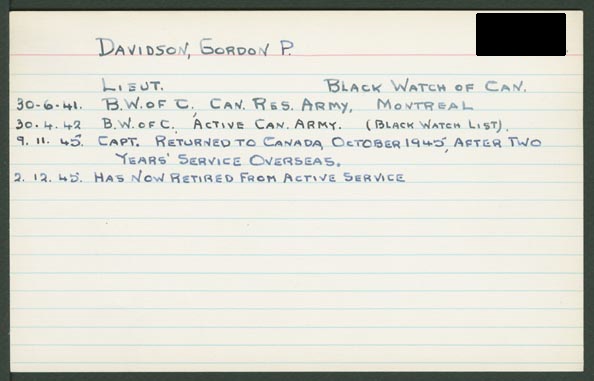 DAVIDSON, GORDON P.
LIEUT. BLACK WATCH OF CAN.
30-6-41. B.W. OF C, CAN. RES. ARMY, MONTREAL
30.4.42 B.W. OF C. ACTIVE CAN. ARMY. (BLACK WATCH LIST).
9.11.45. CAPT. RETURNED TO CANADA, OCTOBER 1945, AFTER TWO
YEARS' SERVICE OVERSEAS.
2.12.45. HAS NOW RETIRED FROM ACTIVE SERVICE